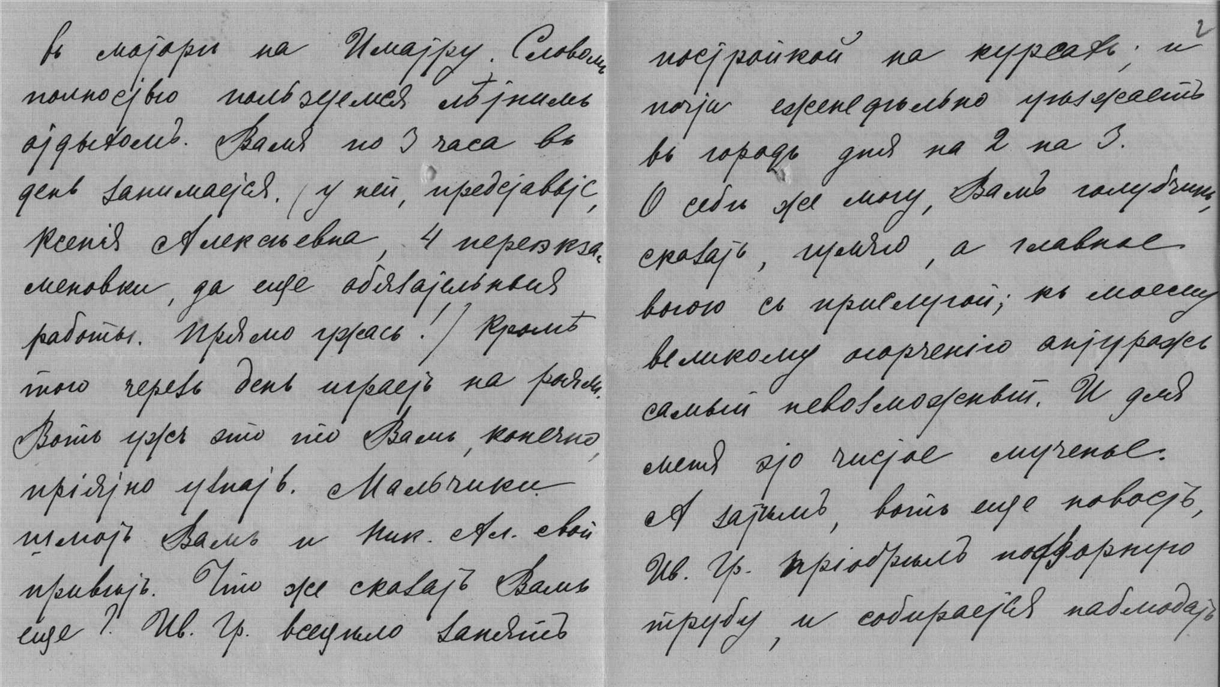 въ моторѣ на Иматру. Словомъ
полностью пользуемся лѣтнимъ
отдыхомъ. Валя по 3 часа въ
день занимается. (у ней, представьте,
Ксенія Алексѣевна, 4 переэкза-
меновки, да еще обязательныя
работы. Прямо ужасъ!) Кромѣ
того черезъ день играетъ на роялѣ.
Вотъ ужъ это то Вамъ, конечно,
пріятно узнать. Мальчики
шлютъ Вамъ и Ник. Ал. свой
привѣтъ. Что же сказать Вамъ
еще? Ив. Гр. всецѣло занятъ
2
постройкой на курсахъ; и
почти еженедѣльно уѣзжаетъ
въ городъ дня на 2 на 3.
О себѣ же могу, Вамъ голубчикъ,
сказать, гуляю, а главное
воюю съ прислугой; къ моему
великому огорченію антуражъ
самый невозможный. И для
меня это чистое мученье.
А затѣмъ, вотъ еще новость,
Ив. Гр. пріобрѣлъ подзорную
трубу, и собирается наблюдать